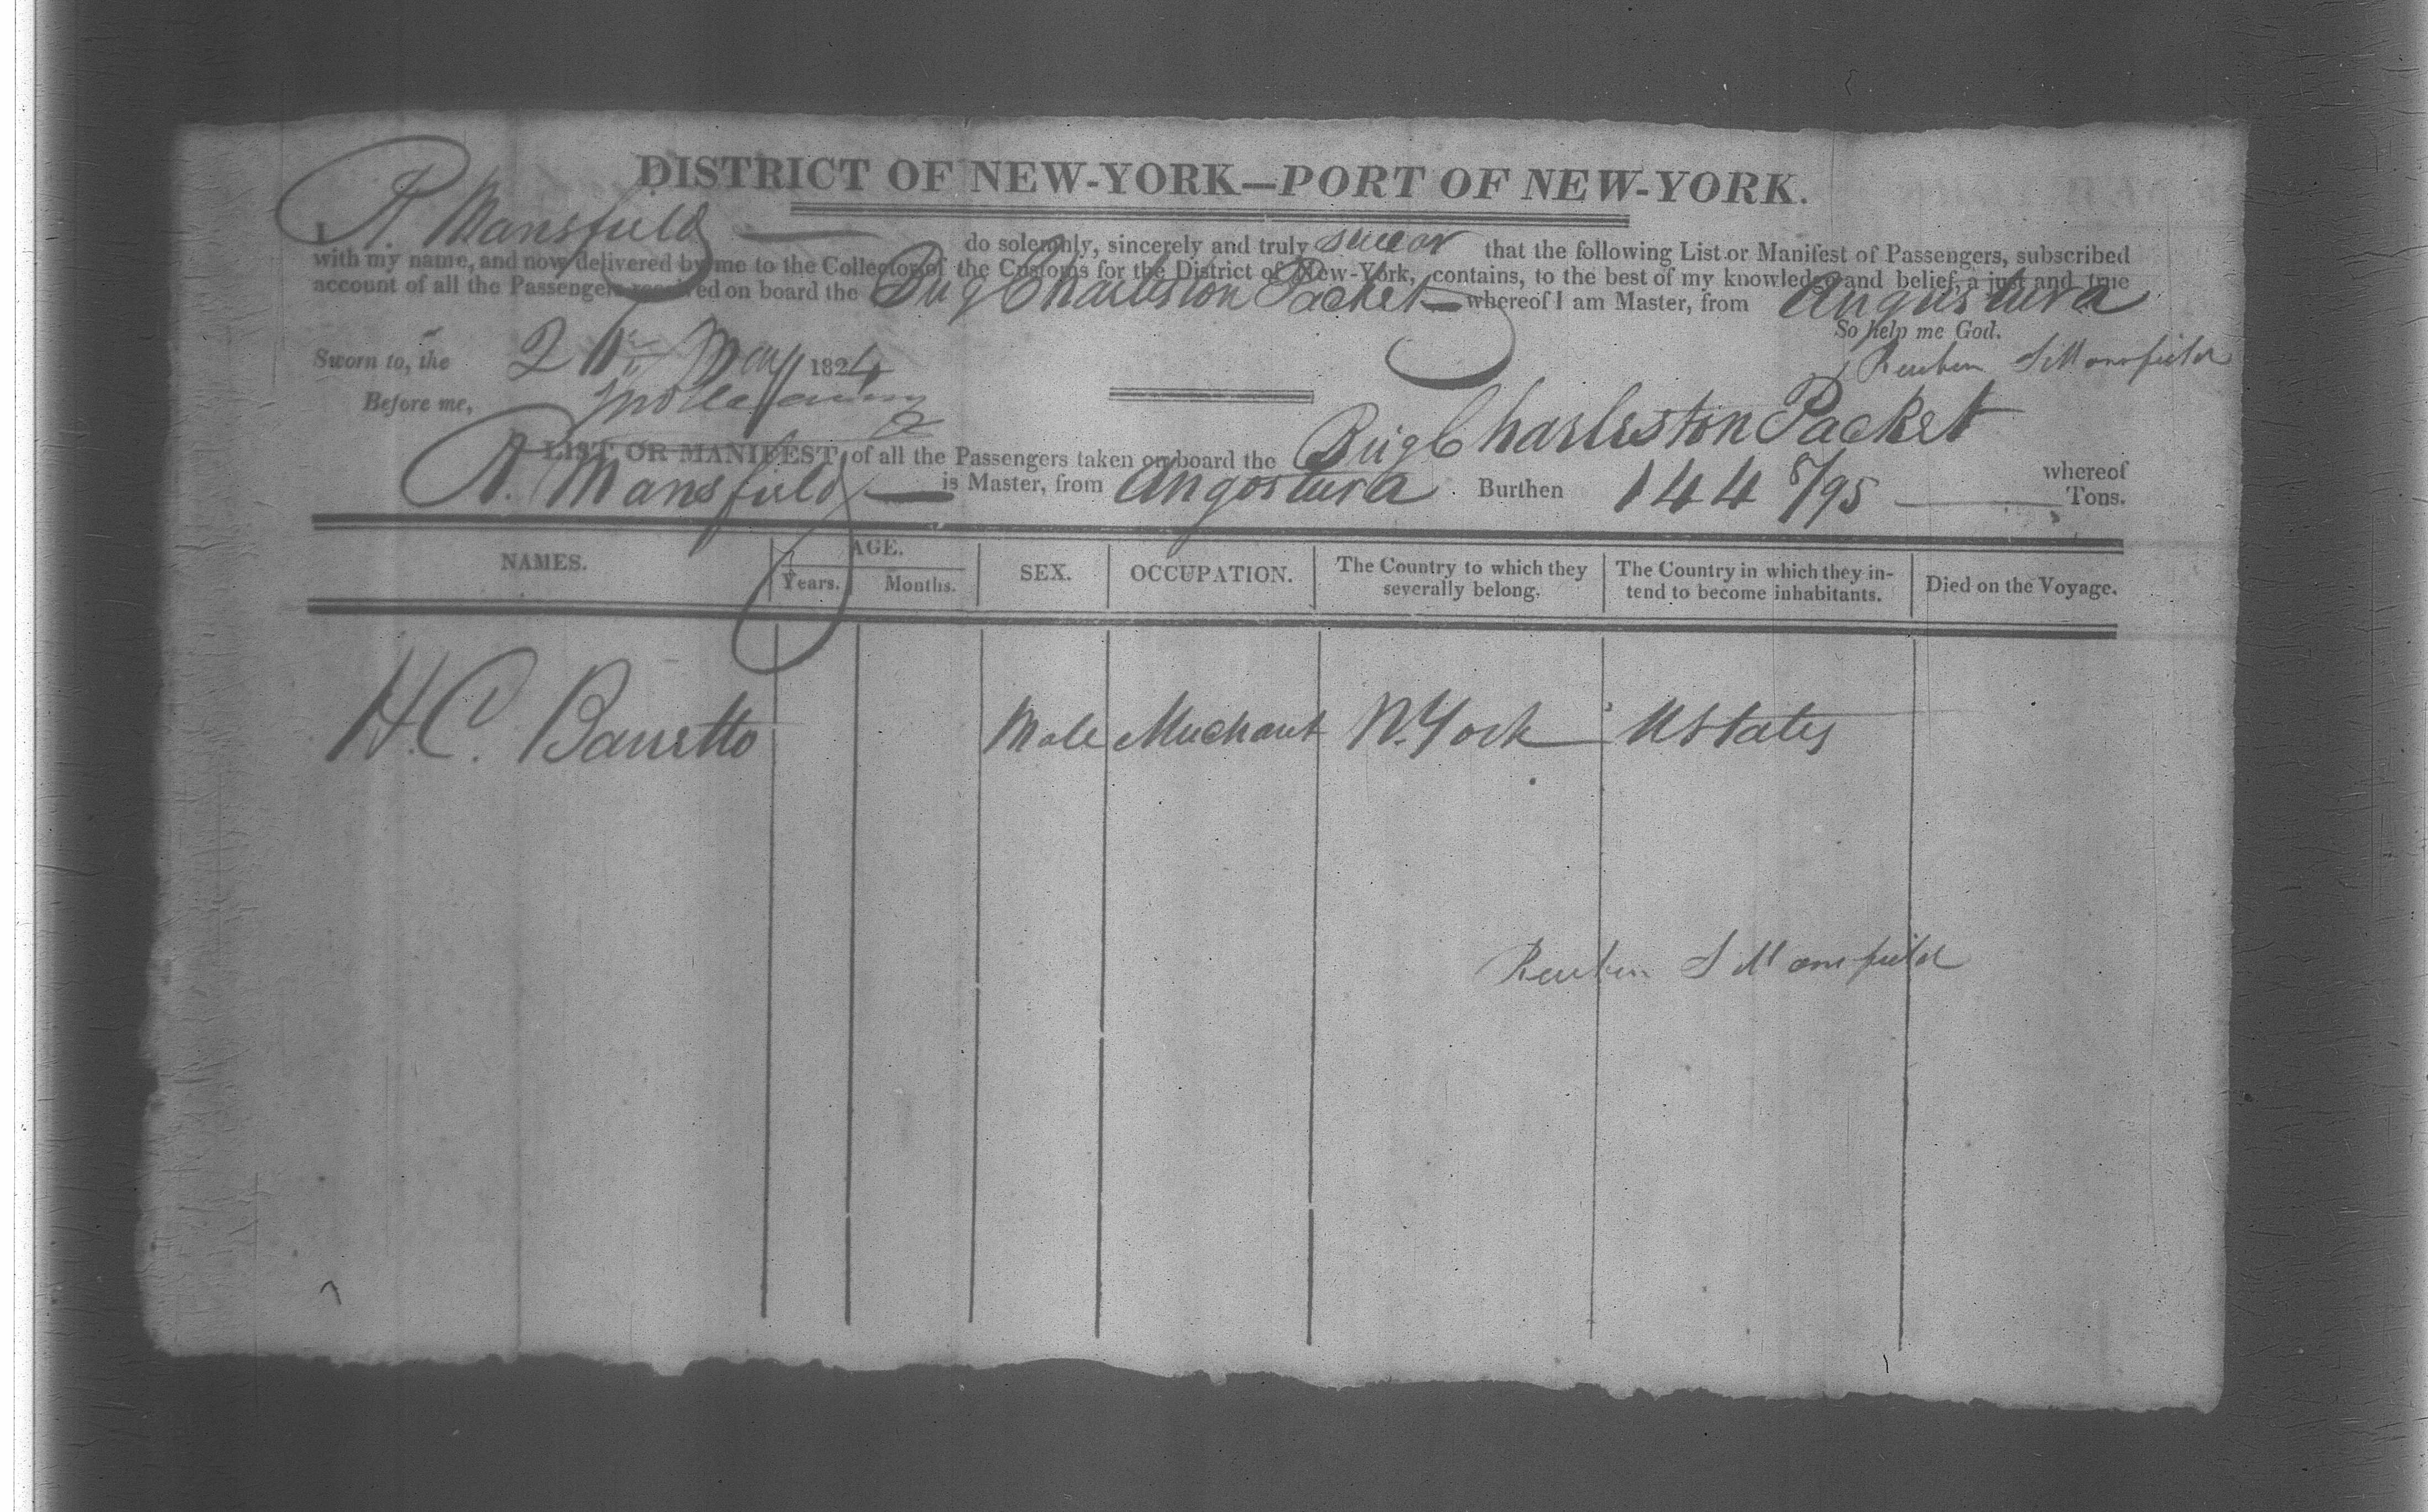 DISTRICT OF NEW-YORK—PORT OF NEW-YORK.
I R. Mansfield do solemnly, sincerely and truly swear that the following List or Manifest of Passengers, subscribed
with my name, and now delivered by me to the Collector of the Customs for the District of New-York, contains, to the best of my knowledge and belief, a just and true
account of all the Passengers received on board the Brig Charleston Packet whereof I am Master, from Angustura
So help me God.
Sworn to, the 21st May 1824 Reuben S Mansfield
Before me,
LIST OR MANIFEST, of all the Passengers taken on board the Brig Charleston Packet whereof
R. Mansfield is Master, from Angostura Burthen 144 8/95 Tons.
NAMES. AGE. Years. Months. SEX. OCCUPATION. The Country to which they severally belong. The Country in which they intend to become inhabitants. Died on the Voyage.
H.C. Barretto Male Merchant N. York UStates
Reuben S Mansfield